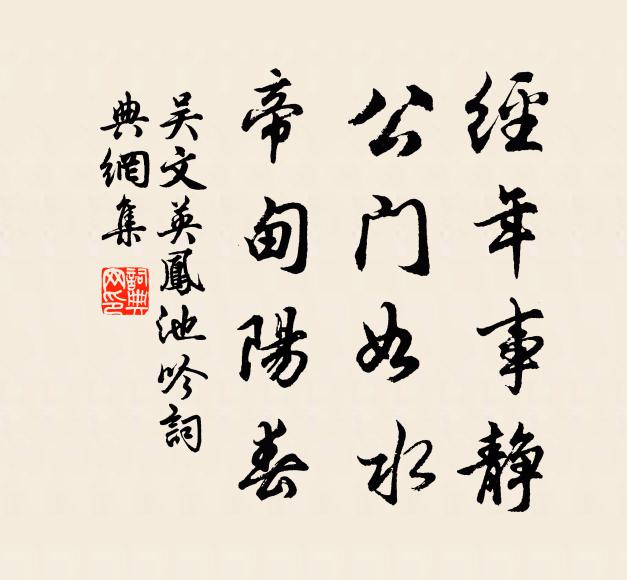 經年事静
公門如水
帝甸陽春
吴文英鳳池吟詞
典網集
詞典网印